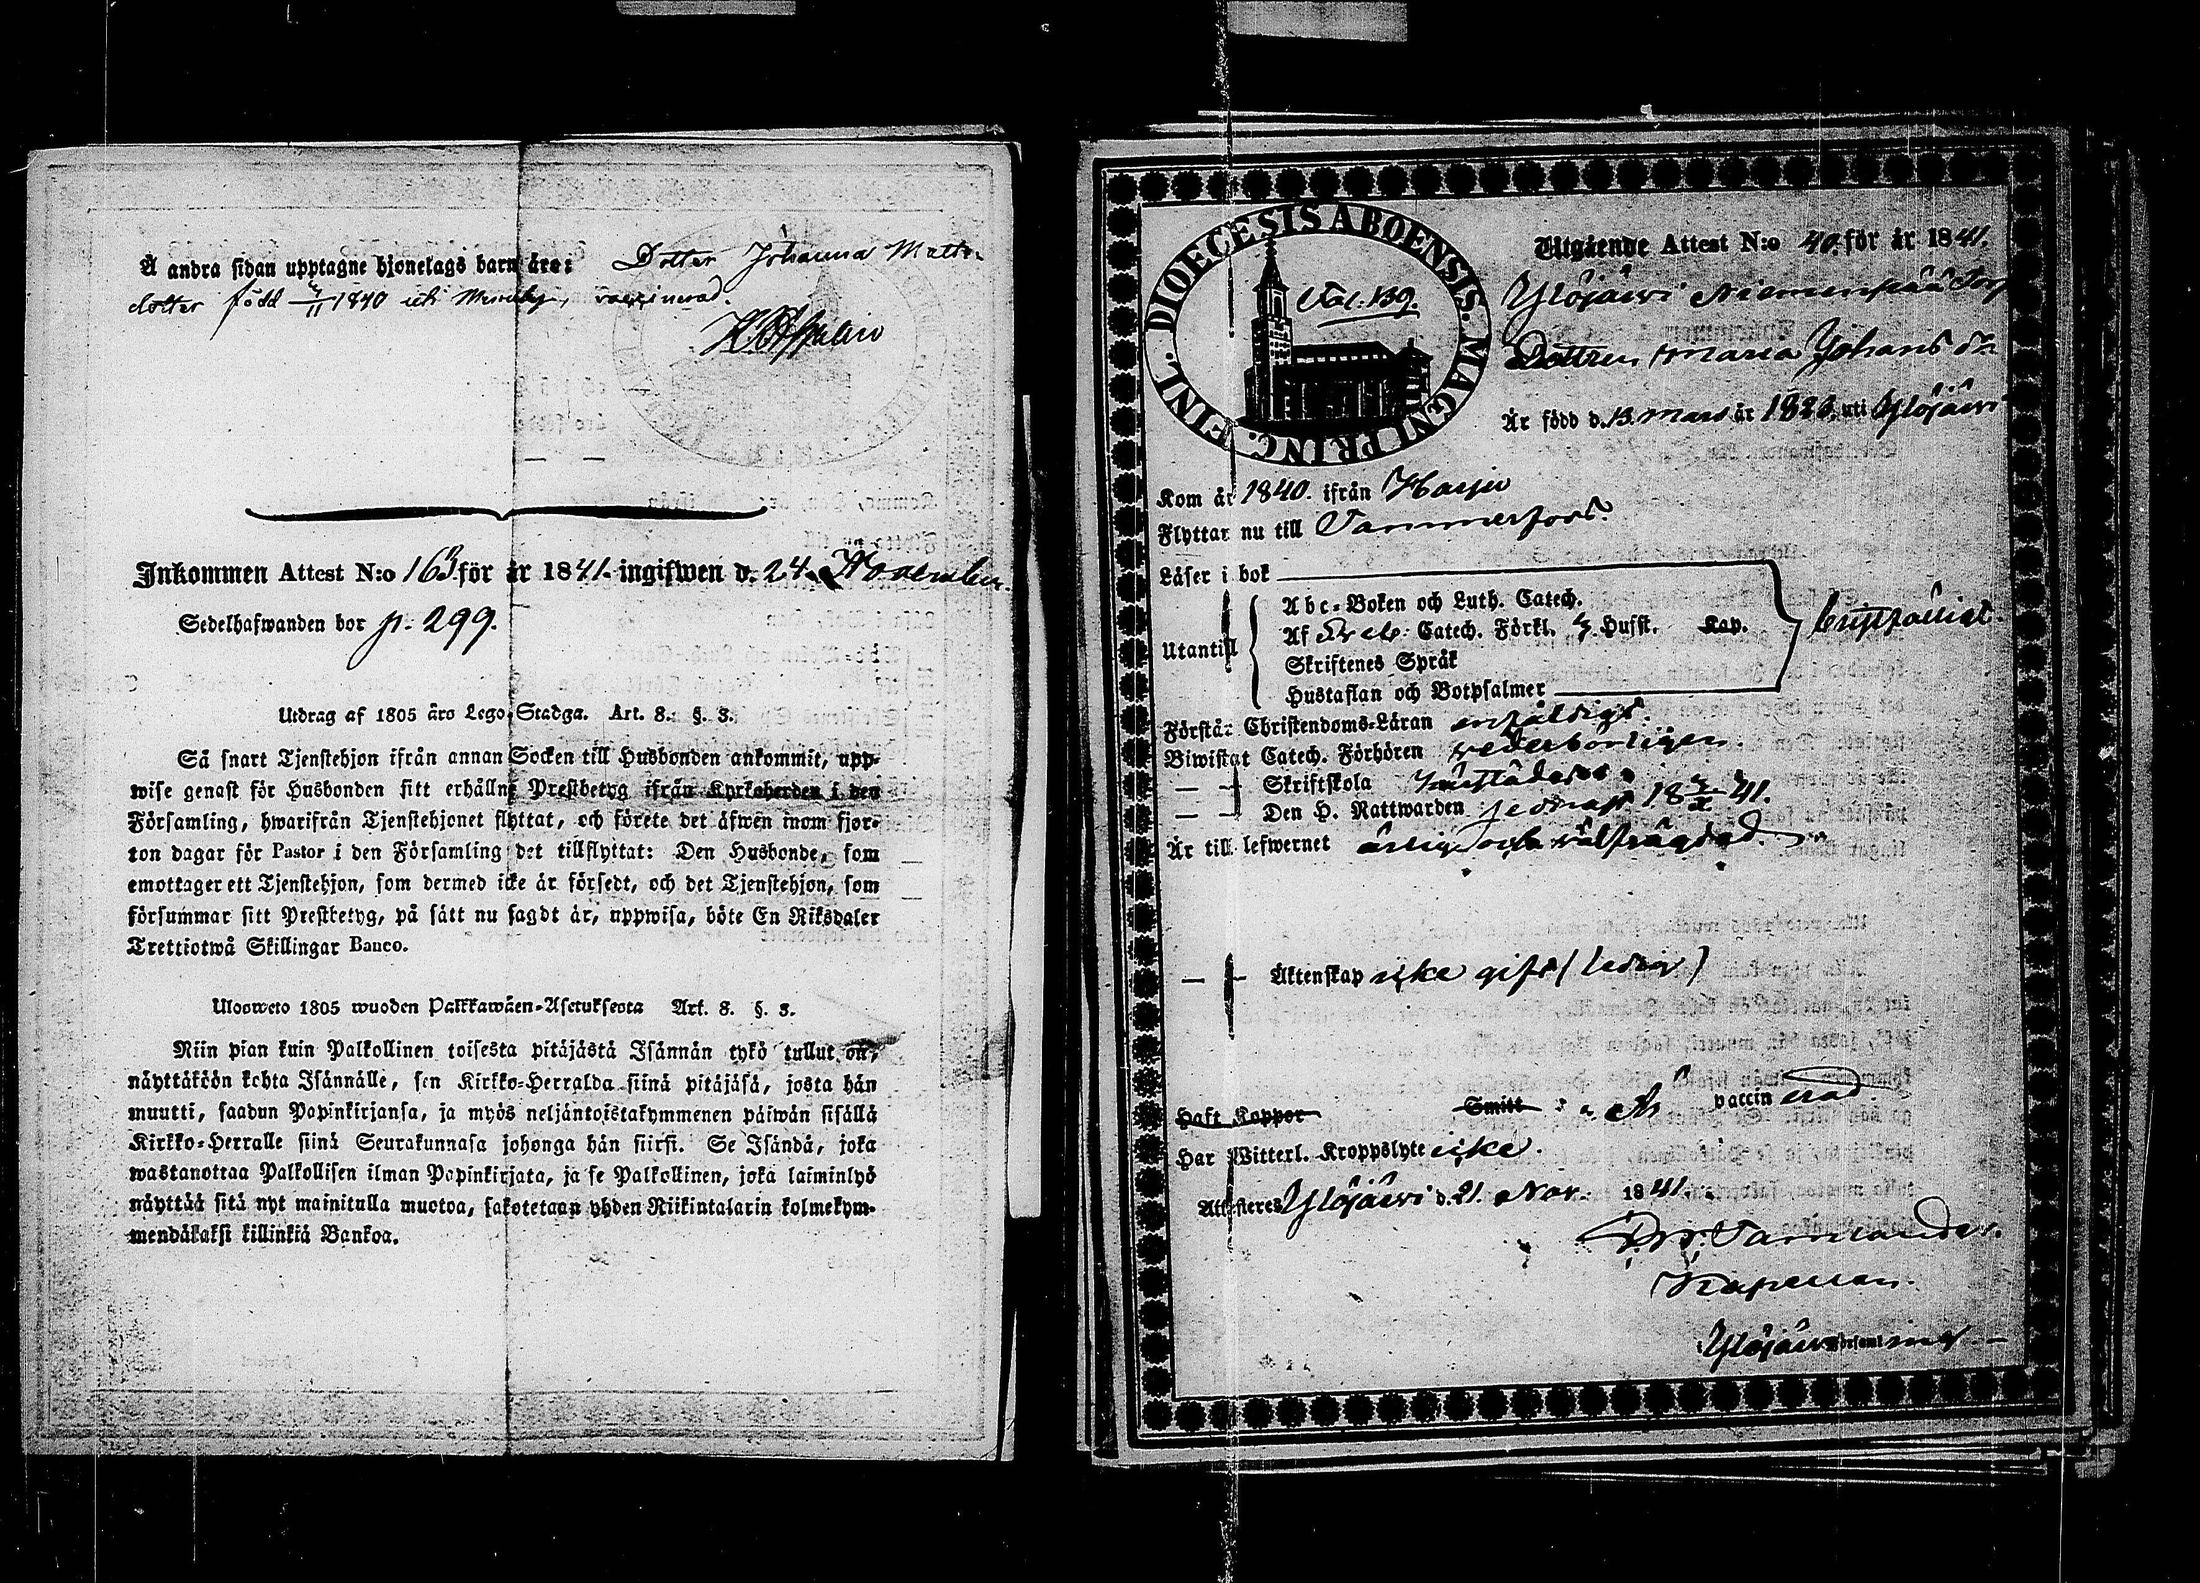 Å andra sidan upptagne hjonelags barn äro: Dotter Johanna Matts-
dotter född 4/11 1840 och vaccinerad.
Inkommen Attest N:o 163 för år 1841. ingifwen d. 24 November.
Sedelhafwanden bor p. 299.
Utdrag af 1805 års Lego-Stadga. Art. 8. §. 3.
Så snart Tjenstehjon ifrån annan Socken till Husbonden ankommit, upp-
wise genast för Husbonden sitt erhållne Prestbetyg ifrån Kyrkoherden i den
Församling, hwarifrån Tjenstehjonet flyttat, och förete det äfwen inom fjor-
ton dagar för Pastor i den Församling det tillflyttat: Den Husbonde, som
emottager ett Tjenstehjon, som dermed icke är försedt, och det Tjenstehjon, som
försummar sitt Prestbetyg, på sätt nu sagdt är, uppwisa, böte En Riksdaler
Trettiotwå Skillingar Banco.
Ulosweto 1805 wuoden Palkkawäen-Asetuksesta Art. 8. §. 3.
Niin pian kuin Palkollinen toisesta pitäjästä Isännän tykö tullut on,
näyttäköön kohta Isännälle, sen Kirkko-Herralda siinä pitäjäsä, josta hän
muutti, saadun Papinkirjansa, ja myös neljäntoistakymmenen päiwän sisällä
Kirkko-Herralle siinä Seurakunnasa johonga hän siirsi. Se Isändä, joka
wastanottaa Palkollisen ilman Papinkirjata, ja se Palkollinen, joka laiminlyö
näyttää sitä nyt mainitulla muotoa, sakotetaan yhden Riikintalarin kolmekym-
mendäkaksi killinkiä Bankoa.
DIOECESIS ABOENSIS. MAGNI PRINC. FINL.
Fol. 139.
Utgående Attest N:o 40. för år 1841.
Ylöjärwi Niemenpää Torp
Dottren Maria Johans dr
Är född d. 13. Mars år 1823. uti Ylöjärwi
Kom år 1840. ifrån Harju
Flyttar nu till Tammerfors.
Läser i bok
Utantill
Abc-Boken och Luth. Catech.
Af Sveb: Catech. Förkl. Husst. Kap.
Skriftenes Språk
Hustaflan och Botpsalmer
Förstår Christendoms-Läran enfäldigt.
Biwistat Catech. Förhören wederbörligen.
— — Skriftskola
— — Den H. Nattwarden senast 18 41.
Är till lefwernet ärlig och wälfrägdad.
— — Äktenskap icke gift (ledig)
Haft Koppor Smitt är vaccinerad.
Har Witterl. Kroppslyte icke.
Attesteres Ylöjärwi d. 21. Nov. 1841.
Kapellan.
Ylöjärwi Församling